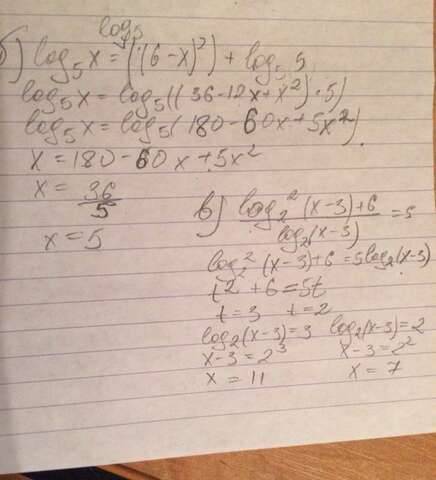 б) log₅x = log₅((6-x)²) + log₅5
log₅x = log₅((36-12x+x²)·5)
log₅x = log₅(180-60x+5x²)
x = 180-60x+5x²
x = 36/5
x = 5
в) (log₂²(x-3)+6)/(log₂(x-3)) = 5
log₂²(x-3)+6 = 5log₂(x-3)
t²+6 = 5t
t = 3 t = 2
log₂(x-3) = 3 log₂(x-3) = 2
x-3 = 2³ x-3 = 2²
x = 11 x = 7